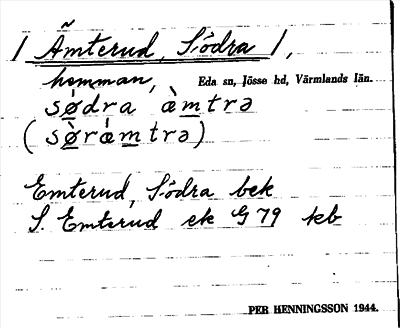 / Ämterud, Södra /,
hemman, Eda sn, Jösse hd, Värmlands län.
södra àmtrə
(sòrámtrə)
Emterud, Södra bek
S. Emterud ek G 79 kb
PER HENNINGSSON 1944.